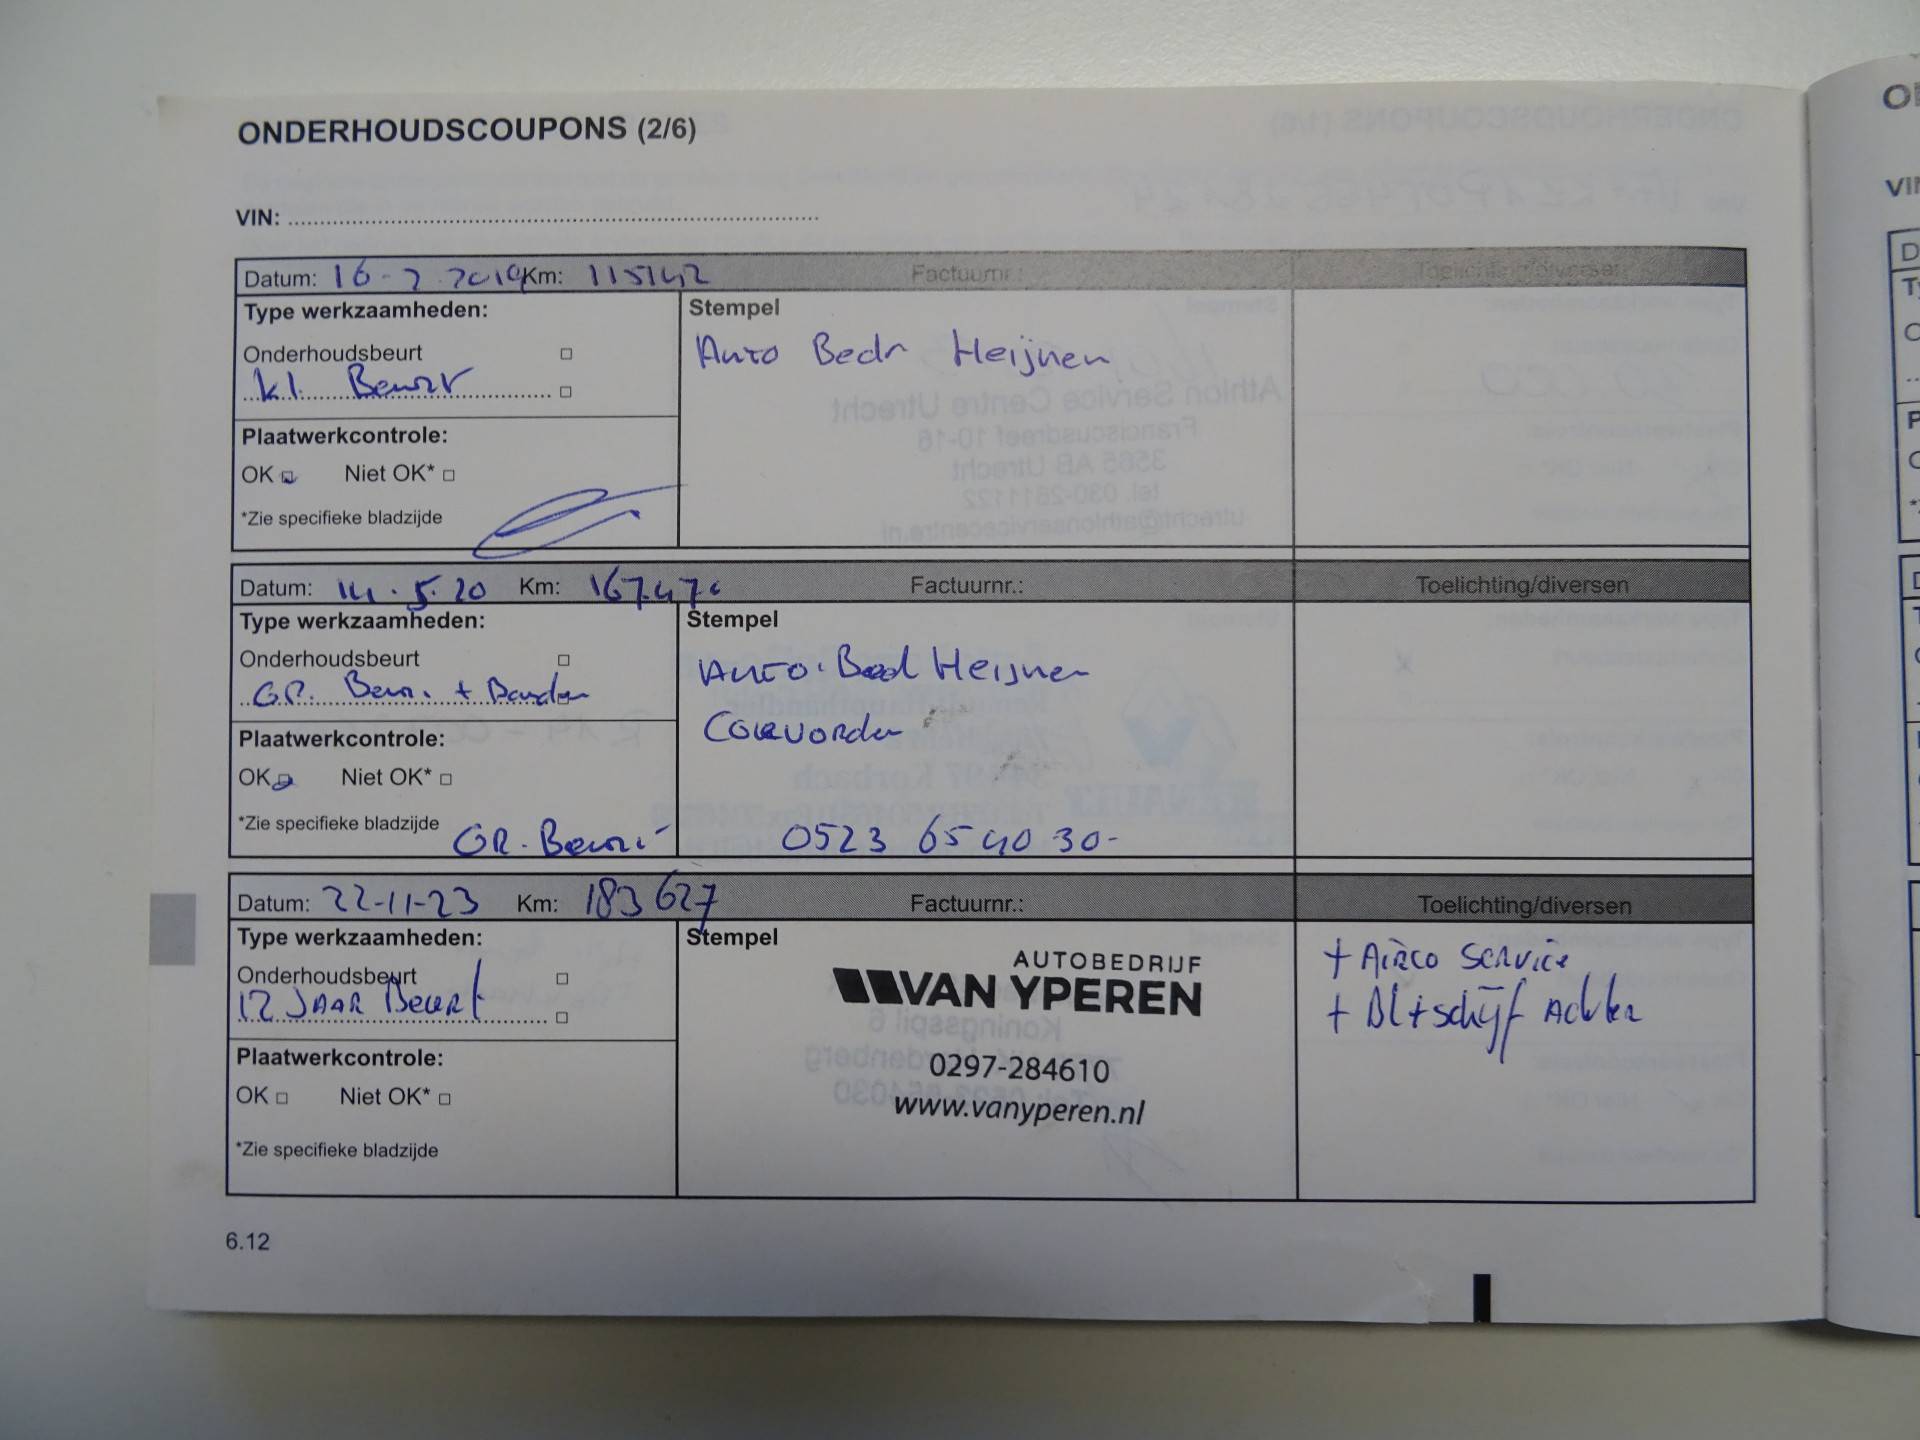 ONDERHOUDSCOUPONS (2/6)
VIN:
Datum: 16-7 2019 Km: 115142 Factuurnr.: Toelichting/diversen
Type werkzaamheden:
Stempel
Auto Bedr Heijnen
Onderhoudsbeurt
kl. Beurt
Plaatwerkcontrole:
OK Niet OK*
*Zie specifieke bladzijde
Datum: 14.5.20 Km: Factuurnr.: Toelichting/diversen
Type werkzaamheden:
Stempel
Auto. Bed Heijnen
Coevorden
0523 654030-
Onderhoudsbeurt
GR. Beur. + Banden
Plaatwerkcontrole:
OK Niet OK*
*Zie specifieke bladzijde
GR. Beurt
Datum: 22-11-23 Km: 183627 Factuurnr.: Toelichting/diversen
Type werkzaamheden:
Onderhoudsbeurt
12 JAAR Beurt
Plaatwerkcontrole:
OK Niet OK*
*Zie specifieke bladzijde
Stempel
AUTOBEDRIJF
VAN YPEREN
0297-284610
www.vanyperen.nl
+ Airco service
+ Bl+schijf Achter
6.12